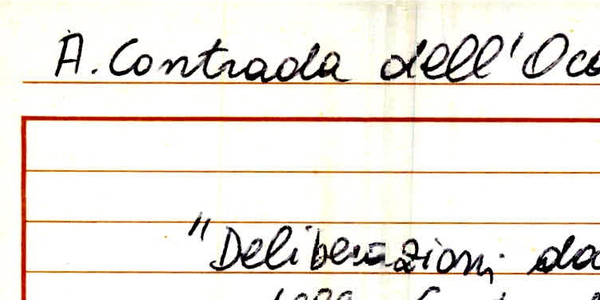 A. Contrada dell'Oca
"Deliberazioni da